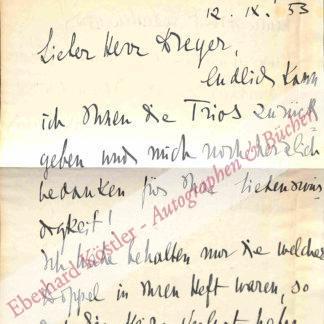 12. IX. 53
Lieber Herr Dreyer,
endlich kann
ich Ihnen die Trios zurück
geben und mich noch herzlich
bedanken für Ihre Liebenswür
digkeit!
Ich habe behalten nur die welche
Doppel in Ihren Heft waren, so
Eberhard Köstler - Autographen & Bücher